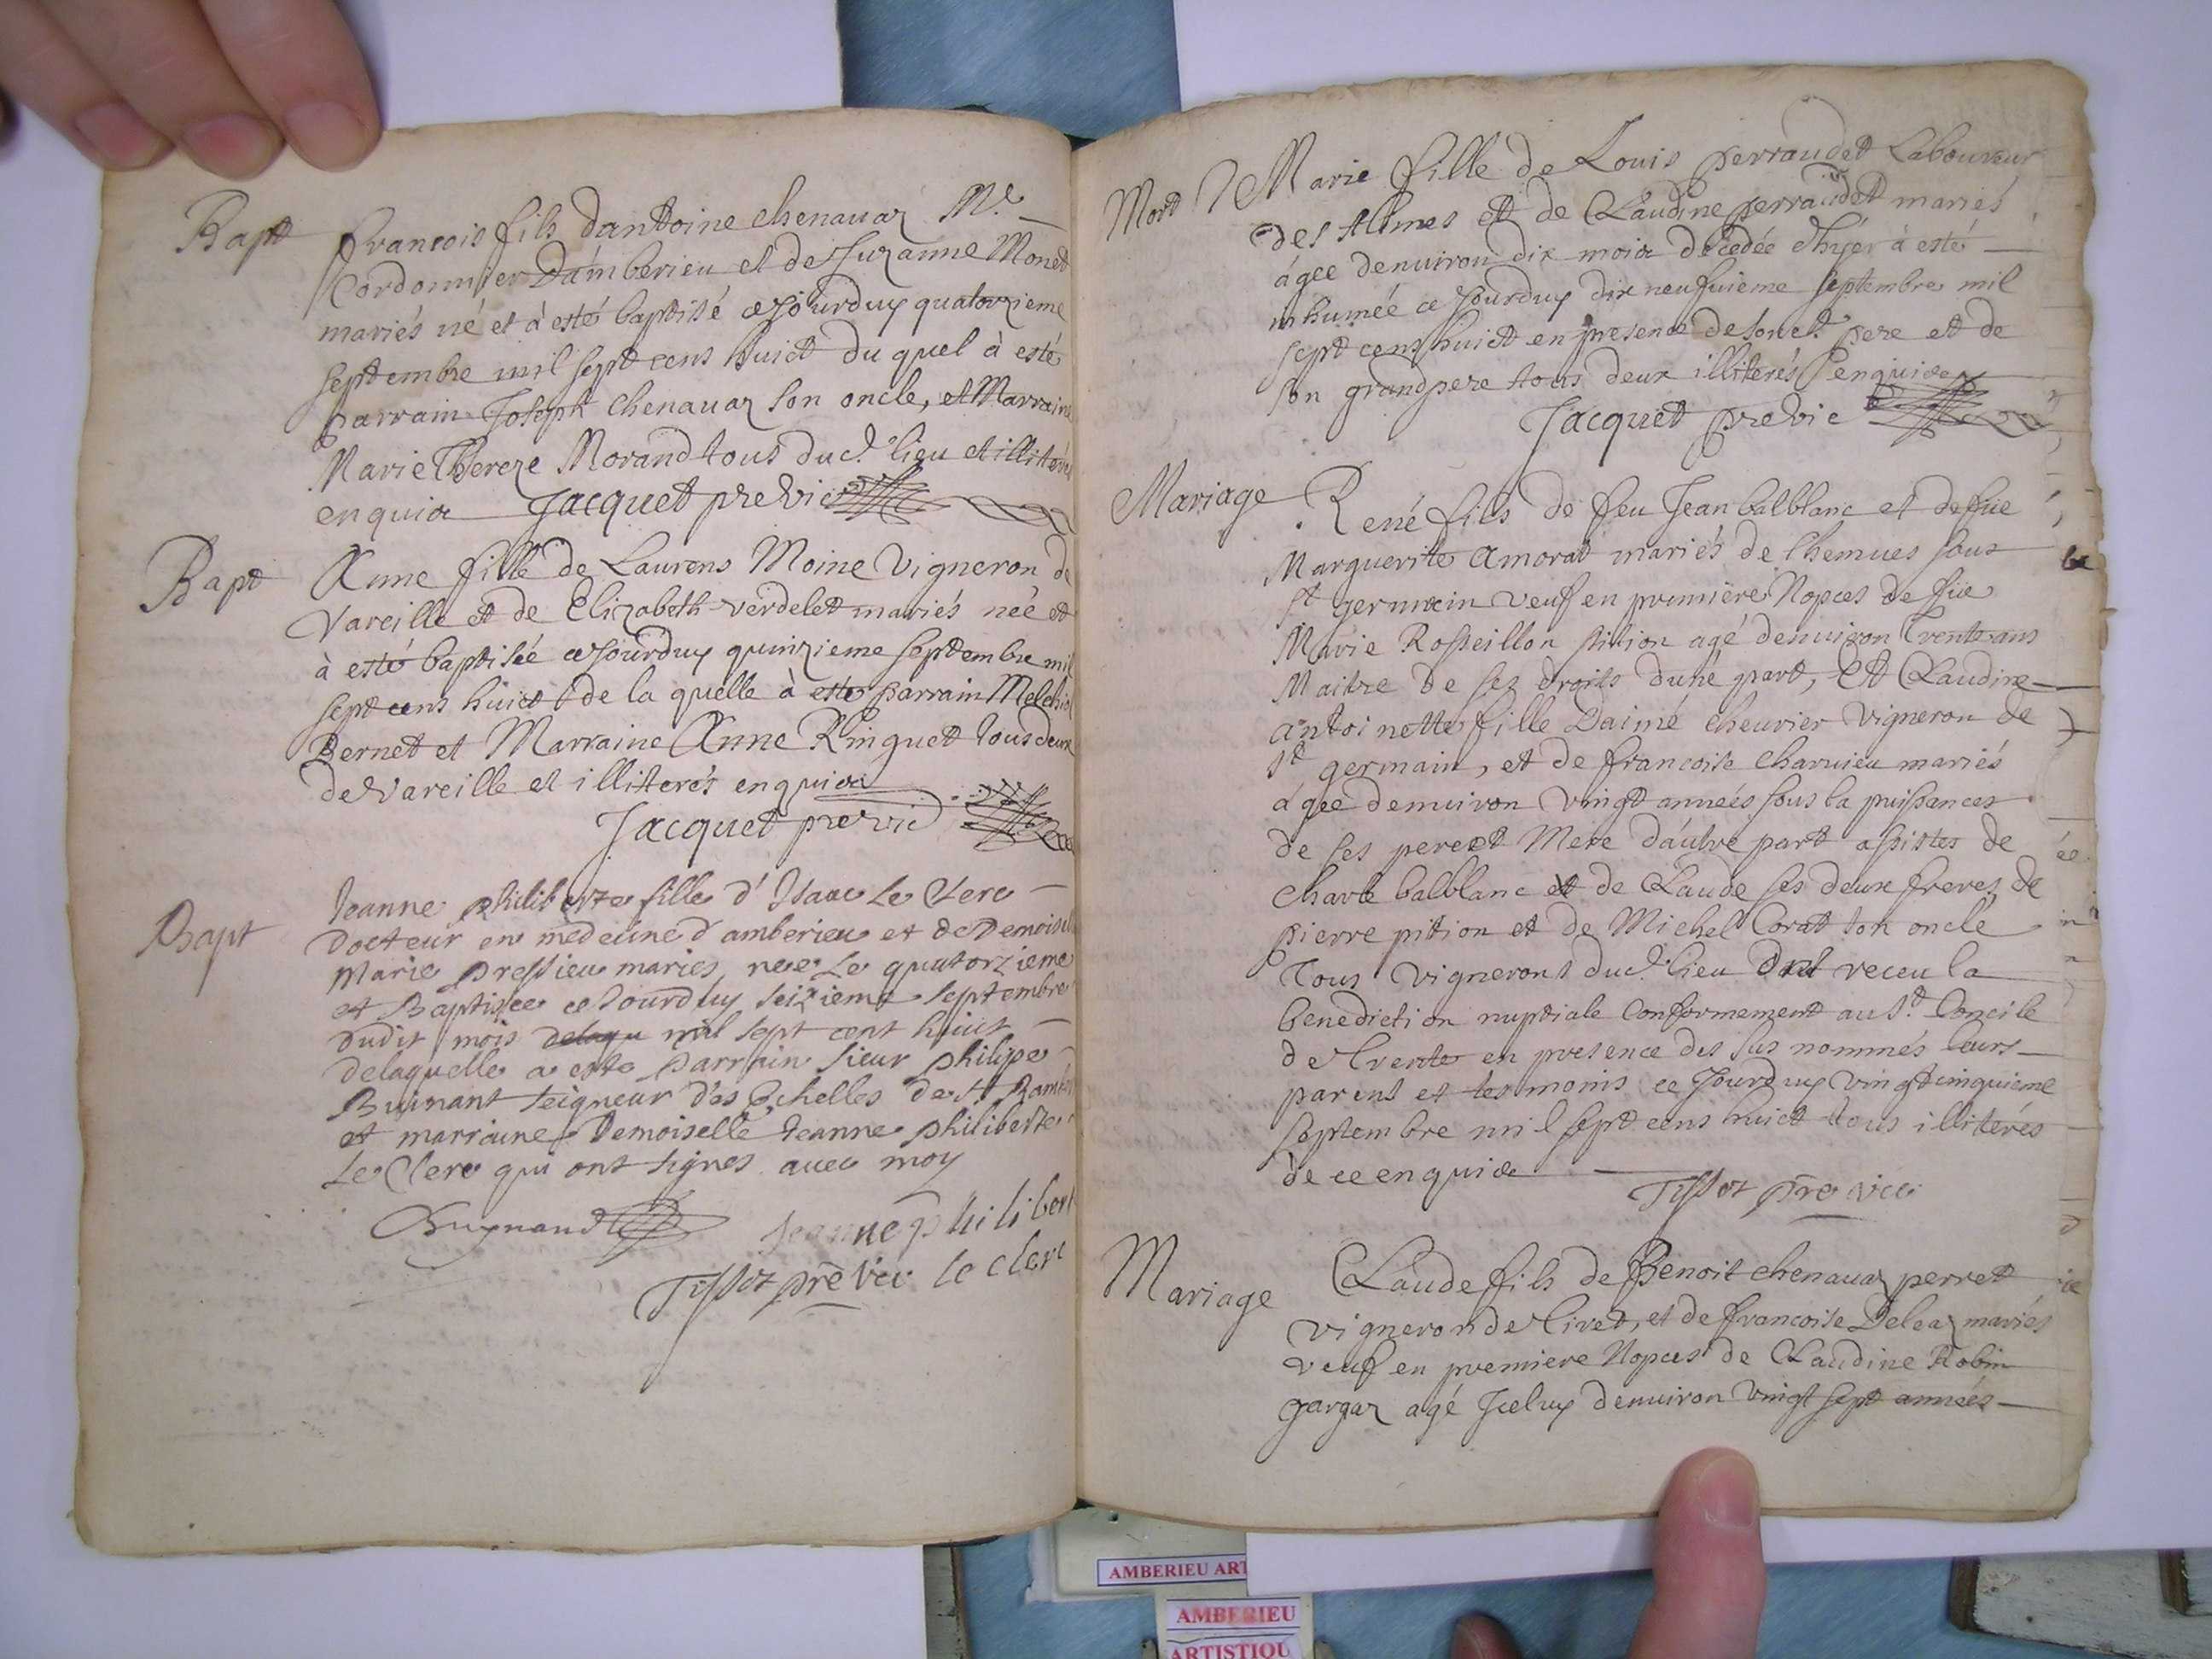 Bapt
francois fils dantoine chenauaz M.e
Cordonnier Damberieu et de Suzanne Monet
mariés né et à esté baptisé ce jourduy quatorzieme
septembre mil sept cens huict du quel à esté
parrain Joseph chenauaz son oncle, et Marraine
Marie Thereze Morand tous dud. lieu et illiterés
enquis Jacquet pre vic
Bapt
Anne fille de Laurens Moine vigneron de
Vareille et de Elizabeth verdelet mariés née et
à esté baptisée ce jourduy quinzieme septembre mil
sept cens huict de la quelle à esté parrain Melchiol
Bernet et Marraine Anne Ringuet tous deux
de Vareille et illiterés enquis
Jacquet pre vic
Bapt
Jeanne philiberte fille d'Isaac Le Clerc
docteur en medecine d'amberieu et de Demoisel
Marie pressieu maries, nee Le quatorzieme
et Baptisée ce Jourduy seizieme septembre
dudit mois delaqu mil sept cent huict
delaquelle a esté parrain sieur philipe
Buinant seigneur des Echelles de St Ramb
et marraine Demoiselle Jeanne philiberte
Le Clerc qui ont signes avec moy
Buynand Jeanne philibert
Tissot pre vic le clerc
Mort
Marie fille de Louis perraudet Laboureur
des Allimes et de Claudine perraudet mariés
ágee denuiron dix mois decedée d'hyer à esté
inhumée ce jourduy dix neufuieme septembre mil
sept cens huict en presence de sond. pere et de
son grandpere tous deux illiterés enquis
Jacquet pre vic
Mariage
René fils de feu Jean balblanc et de fue
Marguerite Amorat mariés de Chemues sous
st germain veuf en premiere Nopces de fue
Marie Rosseillon pition agé denuiron trente ans
Maitre de ses droits dune part, Et Claudine
antoinette fille Daimé cheurier vigneron de
st germain, et de francoise charuieu mariés
ágeé denuiron vingt années sous la puissances
de ses pere et Mere dáutre part assistes de
charle balblanc et de Claude ses deux freres, de
pierre pition et de Michel Corat son oncle
Tous vignerons dud. lieu Ont receu la
benediction nuptiale Conformement au st. Concile
de trente en presence des sus nommés leurs
parens et tesmoins ce Jourduy vingtcinquieme
septembre mil sept cens huict tous illiterés
de ce enquis
Tissot pre vic
Mariage
Claude fils de Benoit chenauaz perret
vigneron de tiret, et de francoise Deleaz mariés
veuf en premiere Nopces de Claudine Robin
gargaz agé Jceluy denuiron vingt sept années
AMBERIEU ART
AMBERIEU
ARTISTIQU